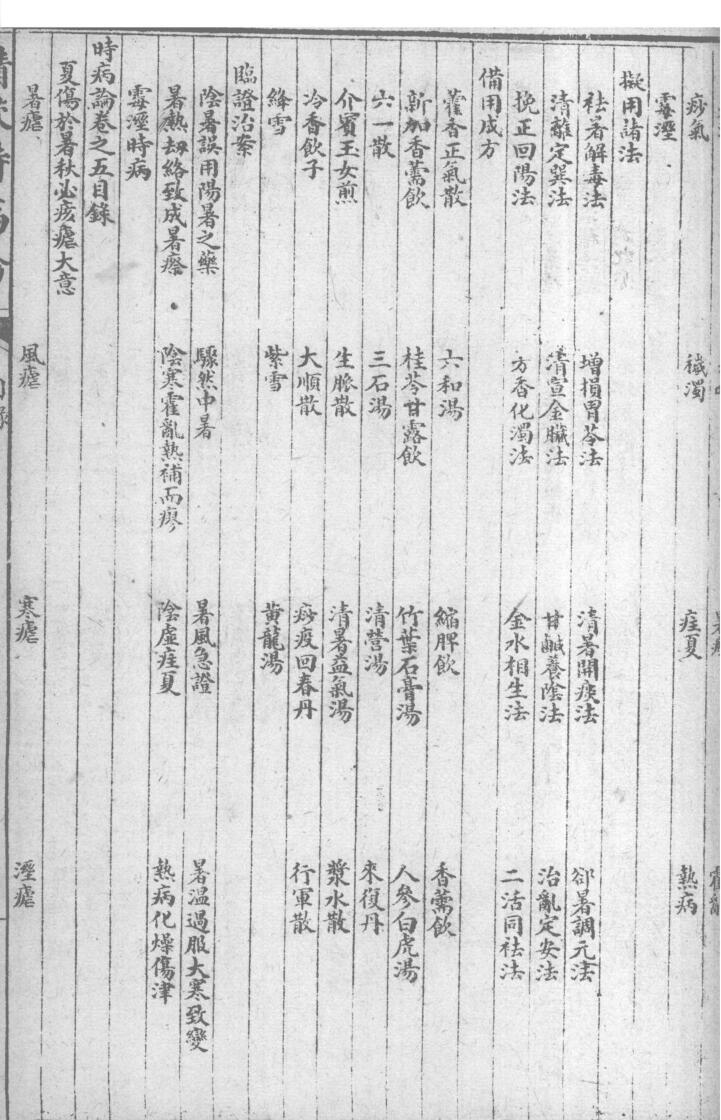 痧氣　穢濁　疰夏　熱病
霉溼
擬用諸法
祛暑解毒法　增損胃苓法　清暑開痰法　卻暑調元法
清離定巽法　清宣金臟法　甘鹹養陰法　治亂定安法
挽正回陽法　芳香化濁法　金水相生法　二活同祛法
備用成方
藿香正氣散　六和湯　縮脾飲　香薷飲
新加香薷飲　桂苓甘露飲　竹葉石膏湯　人參白虎湯
六一散　三石湯　清營湯　來復丹
介賓玉女煎　生脈散　清暑益氣湯　漿水散
冷香飲子　大順散　痧疫回春丹　行軍散
絳雪　紫雪　黃龍湯
臨證治案
陰暑誤用陽暑之藥　驟然中暑　暑風急證　暑溫過服大寒致變
暑熱劫絡致成暑瘵　陰寒霍亂熱補而瘳　陰虛疰夏　熱病化燥傷津
霉溼時病
時病論卷之五目錄
夏傷於暑秋必痎瘧大意
暑瘧　風瘧　寒瘧　溼瘧